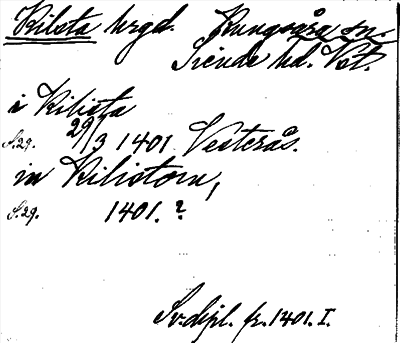 Kilsta hrgd. Kungsåra sn.
Siende hd. Vstm.
i Kilista
S.29. 29/3 1401 Vesterås.
in Kilistom,
S.29. 1401.?
Sv. dipl. fr. 1401. I.